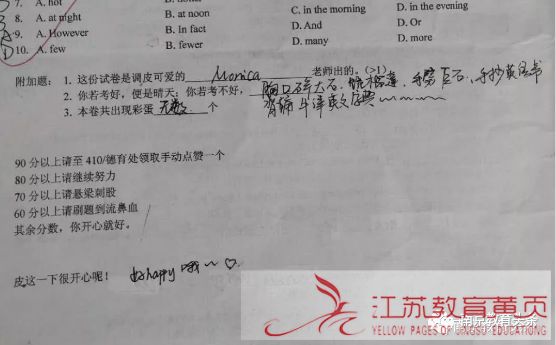 7. A. hot
8. A. at night B. at noon C. in the morning D. in the evening
9. A. However B. In fact D. And D. Or
10. A. few B. fewer D. many D. more
附加题： 1. 这份试卷是调皮可爱的 Monica 老师出的。(>1)
2. 你若考好，便是晴天；你若考不好， 胸口碎大石、 手劈巨石、手抄黄冈书
3. 本卷共出现彩蛋 无数 个 背诵牛津英文字典~~~~
90 分以上请至 410/德育处领取手动点赞一个
80 分以上请继续努力
70 分以上请悬梁刺股
60 分以上请刷题到流鼻血
其余分数，你开心就好。
皮这一下很开心呢！ 好happy 哦~♡
江苏教育黄页
YELLOW PAGES OF JIANGSU EDUCATION